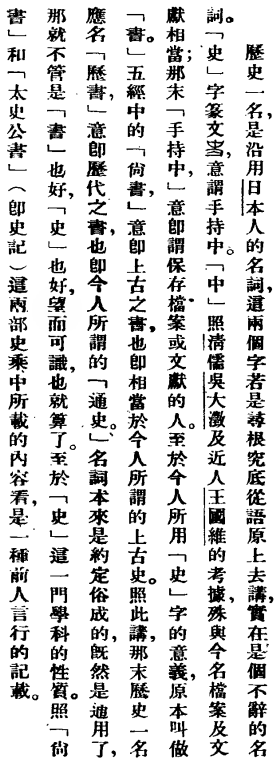 歷史一名，是沿用日本人的名詞，這兩個字若是尋根究底從語原上去講，實在是個不辭的名
詞。「史」字篆文𠭁，意謂手持中。「中」照清儒吳大澂及近人王國維的考據，殊與今名檔案及文
獻相當；那末「手持中，」意即謂保存檔案或文獻的人。至於今人所用「史」字的意義，原本叫做
「書。」五經中的「尙書，」意即上古之書，也卽相當於今人所謂的上古史。照此講，那末歷史一名
應名「歷書，」意卽歷代之書，也卽今人所謂的「通史。」名詞本來是約定俗成的，旣然是通用了，
那就不管是「書」也好，「史」也好，望而可識，也就算了。至於「史」這一門學科的性質。照「尙
書」和「太史公書」（卽史記）這兩部史乘中所載的內容看，是一種前人言行的記載。